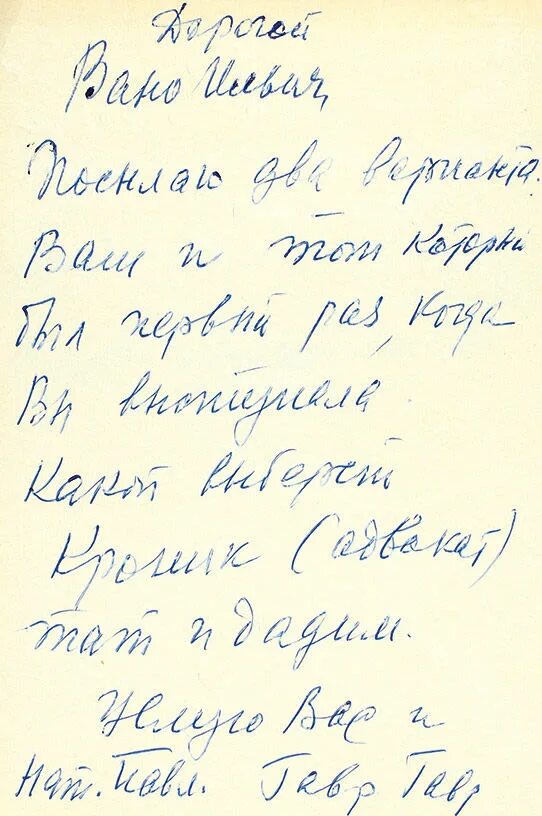 Дорогой
Вано Ильич,
Посылаю два варианта.
Ваш и тот который
был первый раз, когда
Вы выступала.
Какой выберет
Кроник (адвокат)
тот и дадим.
Целую Вас и
Нат. Павл. Гавр Гавр